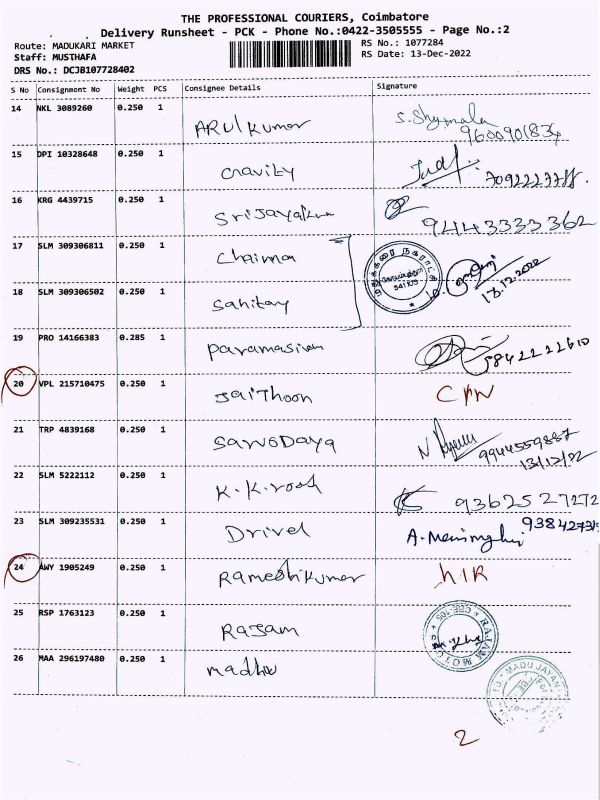 THE PROFESSIONAL COURIERS, Coimbatore
Delivery Runsheet - PCK - Phone No.:0422-3505555 - Page No.:2
Route: MADUKARI MARKET
RS No.: 1077284
Staff: MUSTHAFA
RS Date: 13-Dec-2022
DRS No.: DCJB107728402
S No Consignment No Weight PCS Consignee Details Signature
14 NKL 3089260 0.250 1 ARUlkumar S. Shymala
9600901834
15 DPI 10328648 0.250 1 Cravity
16 KRG 4439715 0.250 1 Srijayalkum
9443333362
17 SLM 309306811 0.250 1 Chaiman
13.12.2022
18 SLM 309306502 0.250 1 Sanitary
19 PRO 14166383 0.285 1 Paramasivam
9842222610
20 VPL 215710475 0.250 1 Jaithoon
21 TRP 4839168 0.250 1 Sarvodaya
9944559887
13/12/22
22 SLM 5222112 0.250 1 K.K.
9362527272
23 SLM 309235531 0.250 1 Drivel
24 AWY 1905249 0.250 1 Rameshkumar
25 RSP 1763123 0.250 1 Rajam
RAJAM MOTO
26 MAA 296197480 0.250 1 madhu
MADU JAYAN
2